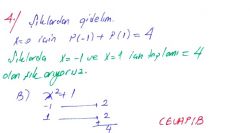 4-) Şıklardan gidelim.
x=0 için P(-1) + P(1) = 4
Şıklarda x=-1 ve x=1 için toplamı = 4
olan şık arıyoruz.
B) x²+1
-1 → 2
1 → 2
+
4
CEVAP:B